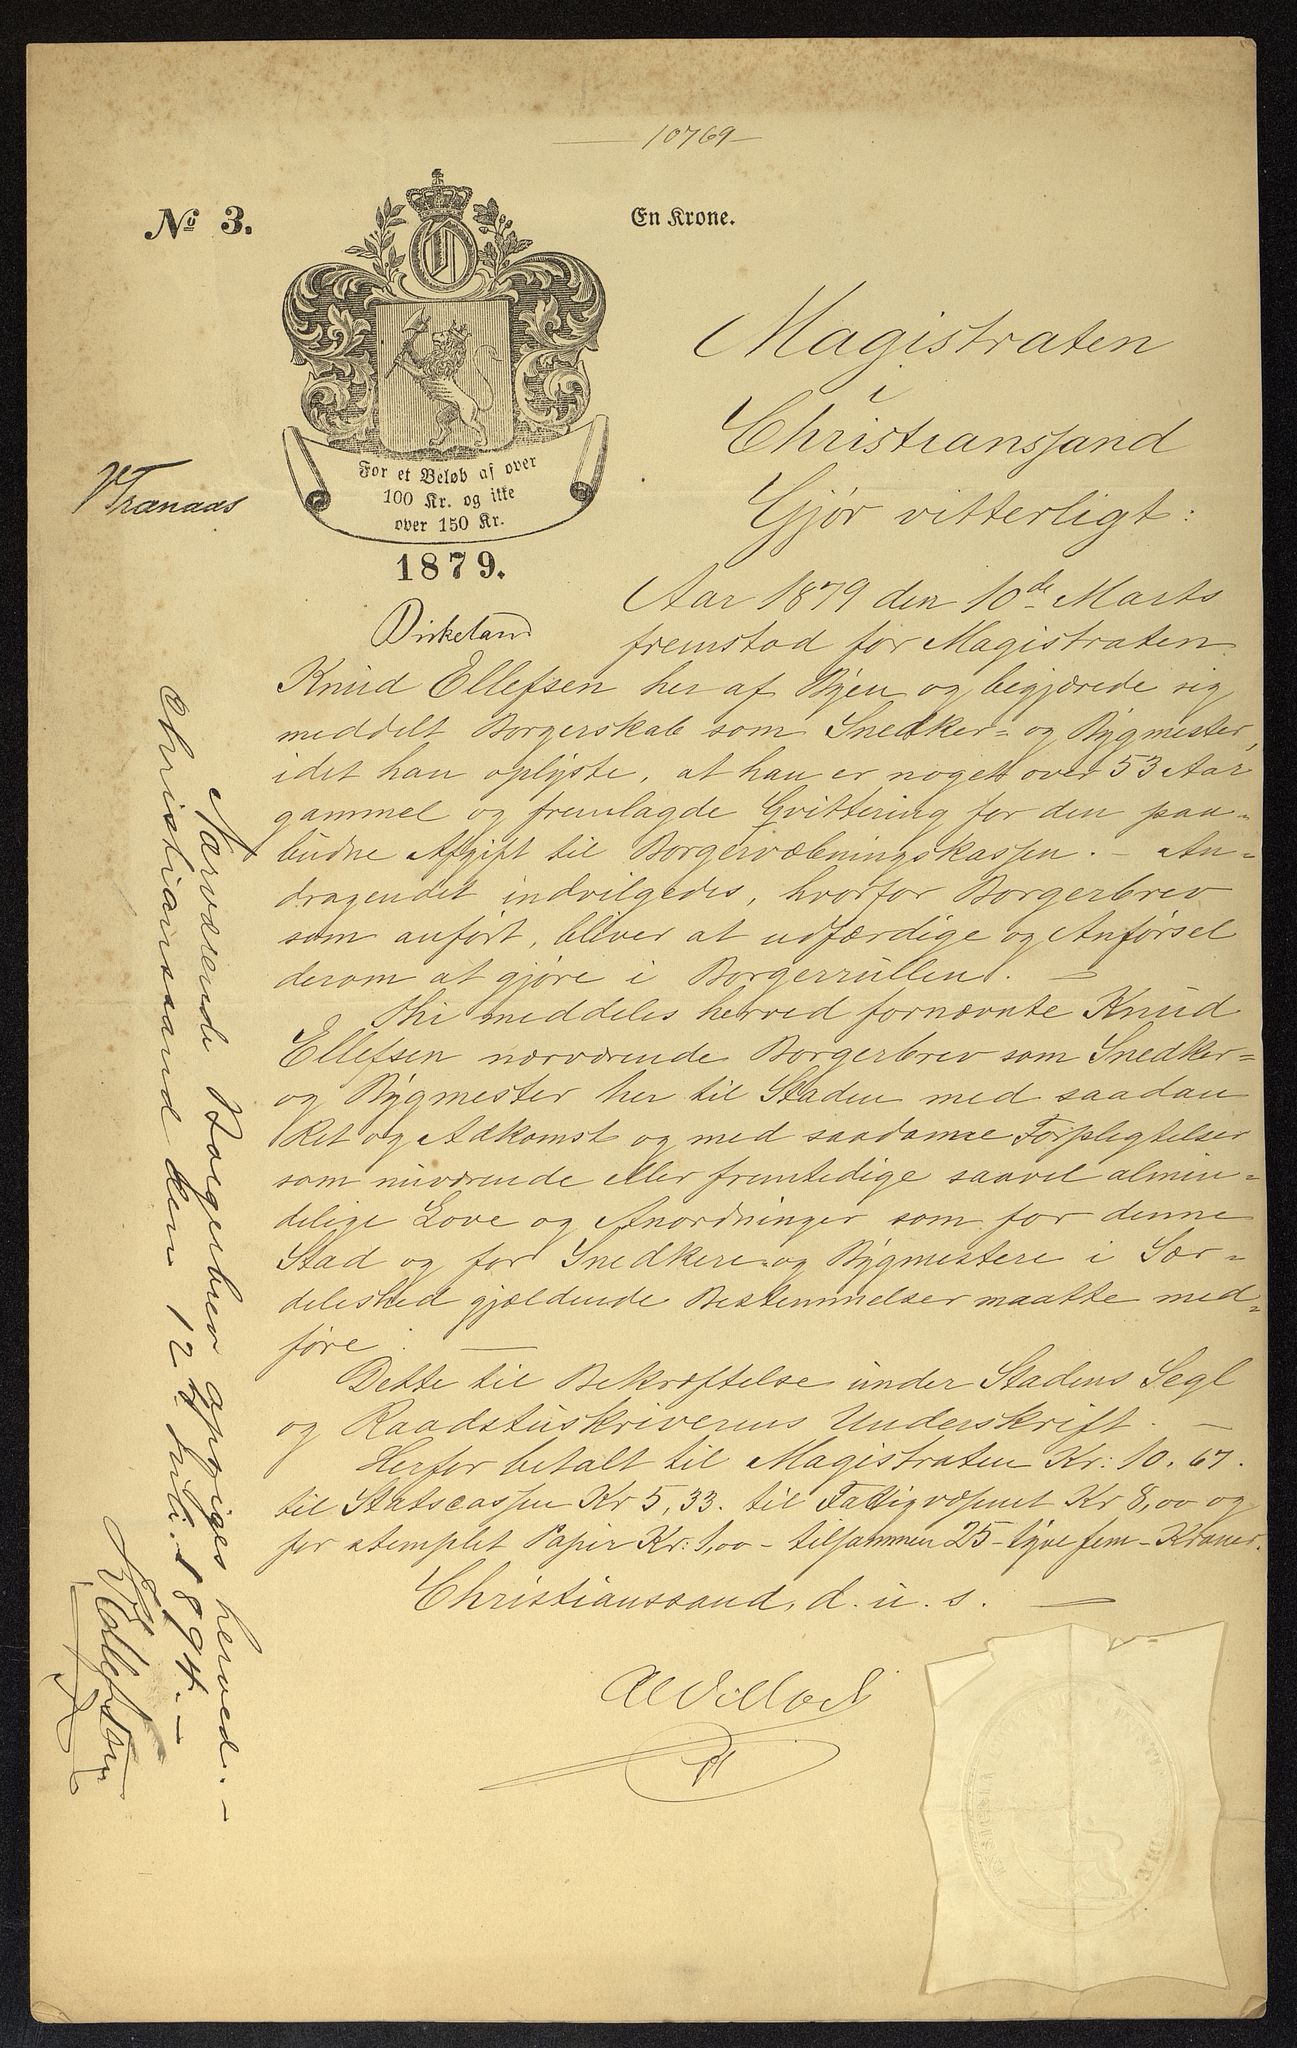 10769
No 3.
En Krone.
For et Beløb af over
100 Kr. og ikke
over 150 Kr.
1879.
Magistraten
i
Christianssand
Gjør vitterligt:
Aar 1879 den 10de Marts
fremstod for Magistraten
Knud Ellefsen her af Byen og begjærede sig
meddelt Borgerskab som Snedker- og Bygmester,
idet han oplyste, at han er noget over 53 Aar
gammel og fremlagde Qvittering for den paa-
budne Afgift til Borgervæbningskassen. - An-
dragendet indvilgedes, hvorfor Borgerbrev
som anført, bliver at udfærdige og Anførsel
derom at gjøre i Borgerrullen. —
Thi meddeles herved fornævnte Knud
Ellefsen nærværende Borgerbrev som Snedker-
og Bygmester her til Staden med saadan
Ret og Adkomst og med saadanne Forpligtelser
som nuværende eller fremtidige saavel almin-
delige Love og Anordninger som for denne
Stad og for Snedkere og Bygmestere i Sær-
deleshed gjældende Bestemmelser maatte med-
føre. —
Dette til Bekræftelse under Stadens Segl
og Raadstuskriverens Underskrift. —
Herfor betalt til Magistraten Kr: 10.67.
til Statscassen Kr 5,33. til Fattigvæsenet Kr 8,00 og
for stemplet Papir Kr: 1,00 - tilsammen 25 - tyve fem - Kroner.
Christianssand, d. u. s. —
Nærværende Borgerbrev opsiges herved. -
Christianssand den 12 Juli 1894. -
K Ellefsen